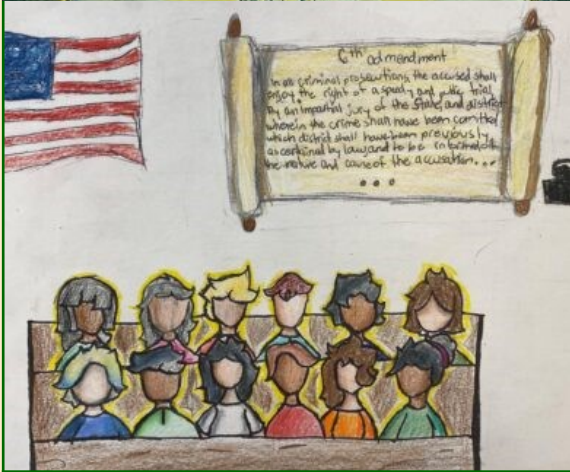 6th admendment
In all criminal prosecutions, the accused shall
enjoy the right of a speedy and public trial
By an impartial jury of the State, and district
wherein the crime shall have been comitted
which district shall have been previously
ascertained by law, and to be informed of
the nature and cause of the accusation...
...